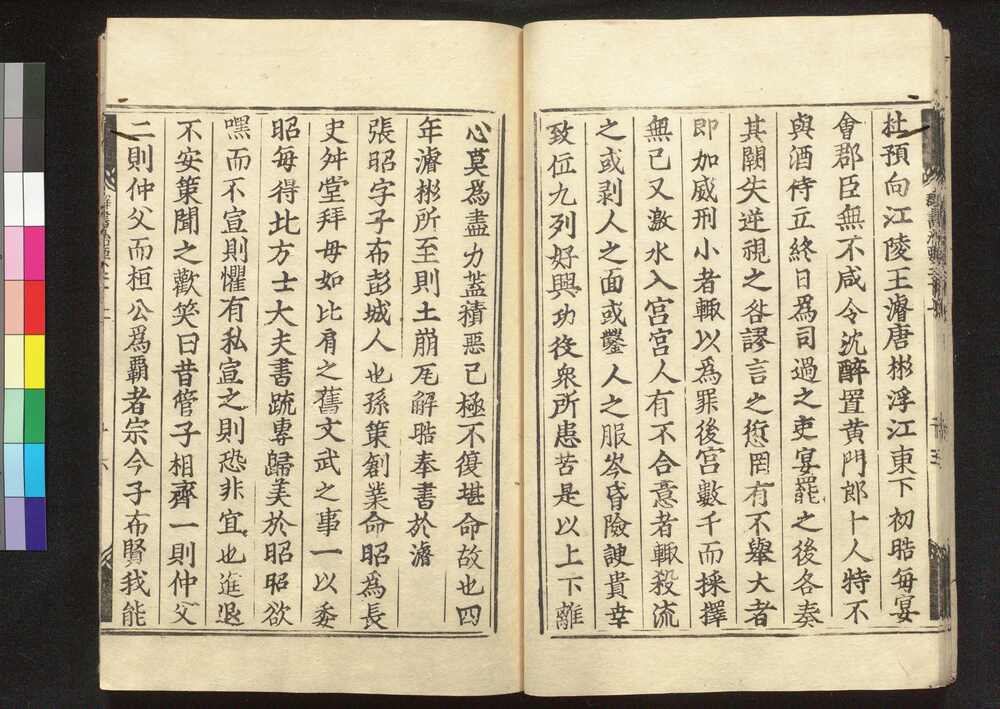 杜預向江陵王濬唐彬浮江東下初晧每宴
會郡臣無不咸令沈醉置黄門郎十人特不
與酒侍立終日爲司過之吏宴罷之後各奏
其闕失逆視之咎謬言之愆罔有不舉大者
即如威刑小者輙以爲罪後宫數千而採擇
無已又激水入宫宫人有不合意者輙殺流
之或剥人之面或鑿人之服岑昏險諛貴幸
致位九列好興功役衆所患苦是以上下離
心莫爲盡力蓋積惡已極不復堪命故也四
年濬彬所至則土崩瓦解晧奉書於濬
張昭字子布彭城人也孫策創業命昭爲長
史舛堂拜母如比肩之舊文武之事一以委
昭每得北方士大夫書踈專歸美於昭昭欲
嘿而不宣則懼有私宣之則恐非宜也進退
不安策聞之歡笑曰昔管子相齊一則仲父
二則仲父而桓公爲覇者宗今子布賢我能